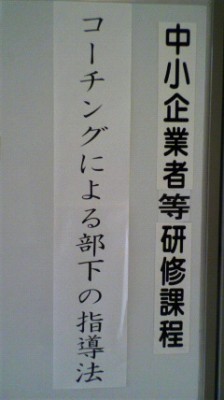 中小企業者等研修課程
コーチングによる部下の指導法